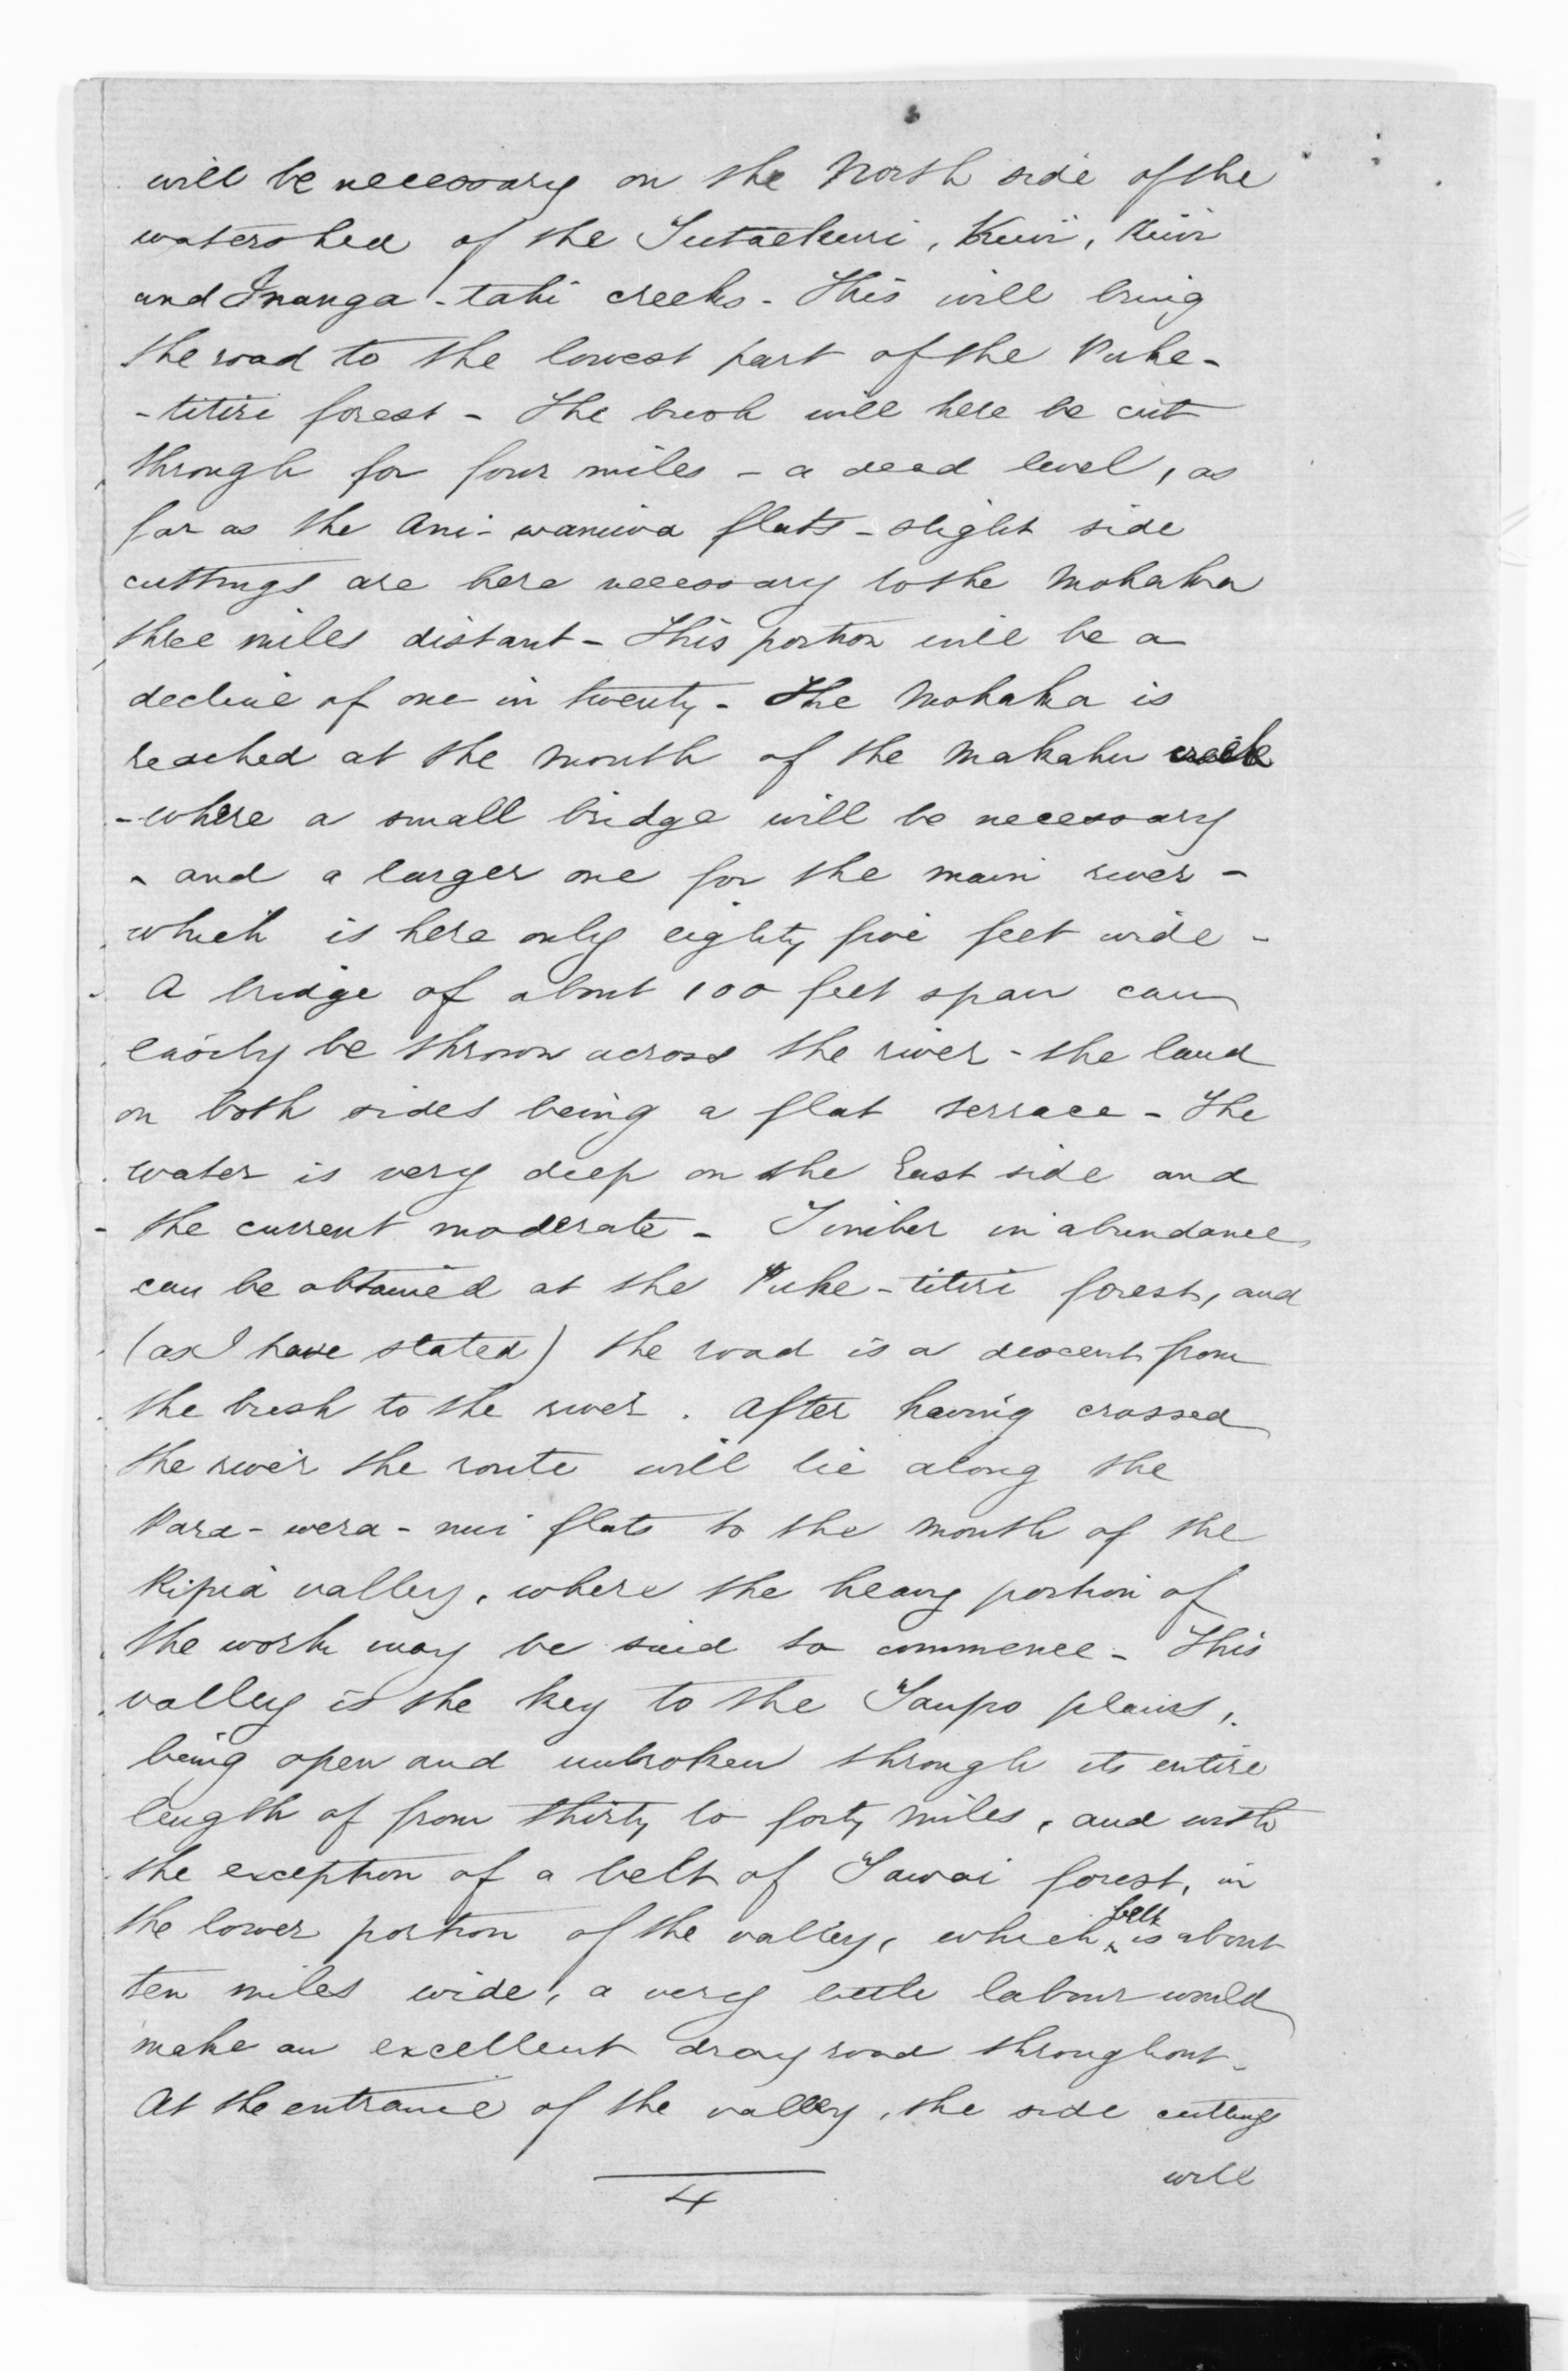 will be necessary on the North side of the
watershed of the Tutaekuri,
and Inanga-tahi creeks - This will bring
the road to the lowest part of the Puke-
-titiri forest - The bush will here be cut
through for four miles - a dead level, as
far as the Ani-waniwa flats - slight side
cuttings are here necessary to the Mohaka
three miles distant - This portion will be a
decline of one in twenty - The Mohaka is
reached at the mouth of the Makahu creek
- where a small bridge will be necessary
- and a larger one for the main river -
which is here only eighty five feet wide -
A bridge of about 100 feet span can
easily be thrown across the river - the land
on both sides being a flat terrace - The
water is very deep on the East side and
- the current moderate - Timber in abundance
can be obtained at the Puke-titiri forest, and
(as I have stated) the road is a descent from
the bush to the river. After having crossed
the river the route will lie along the
Para-wera-nui flats to the mouth of the
Ripia valley, where the heavy portion of
the work may be said to commence - This
valley is the key to the Taupo plains,
being open and unbroken through its entire
length of from thirty to forty miles, and with
the exception of a belt of Tawai forest, in
the lower portion of the valley, which belt is about
ten miles wide, a very little labour would
make an excellent dray road throughout -
At the entrance of the valley, the side cuttings
will
4